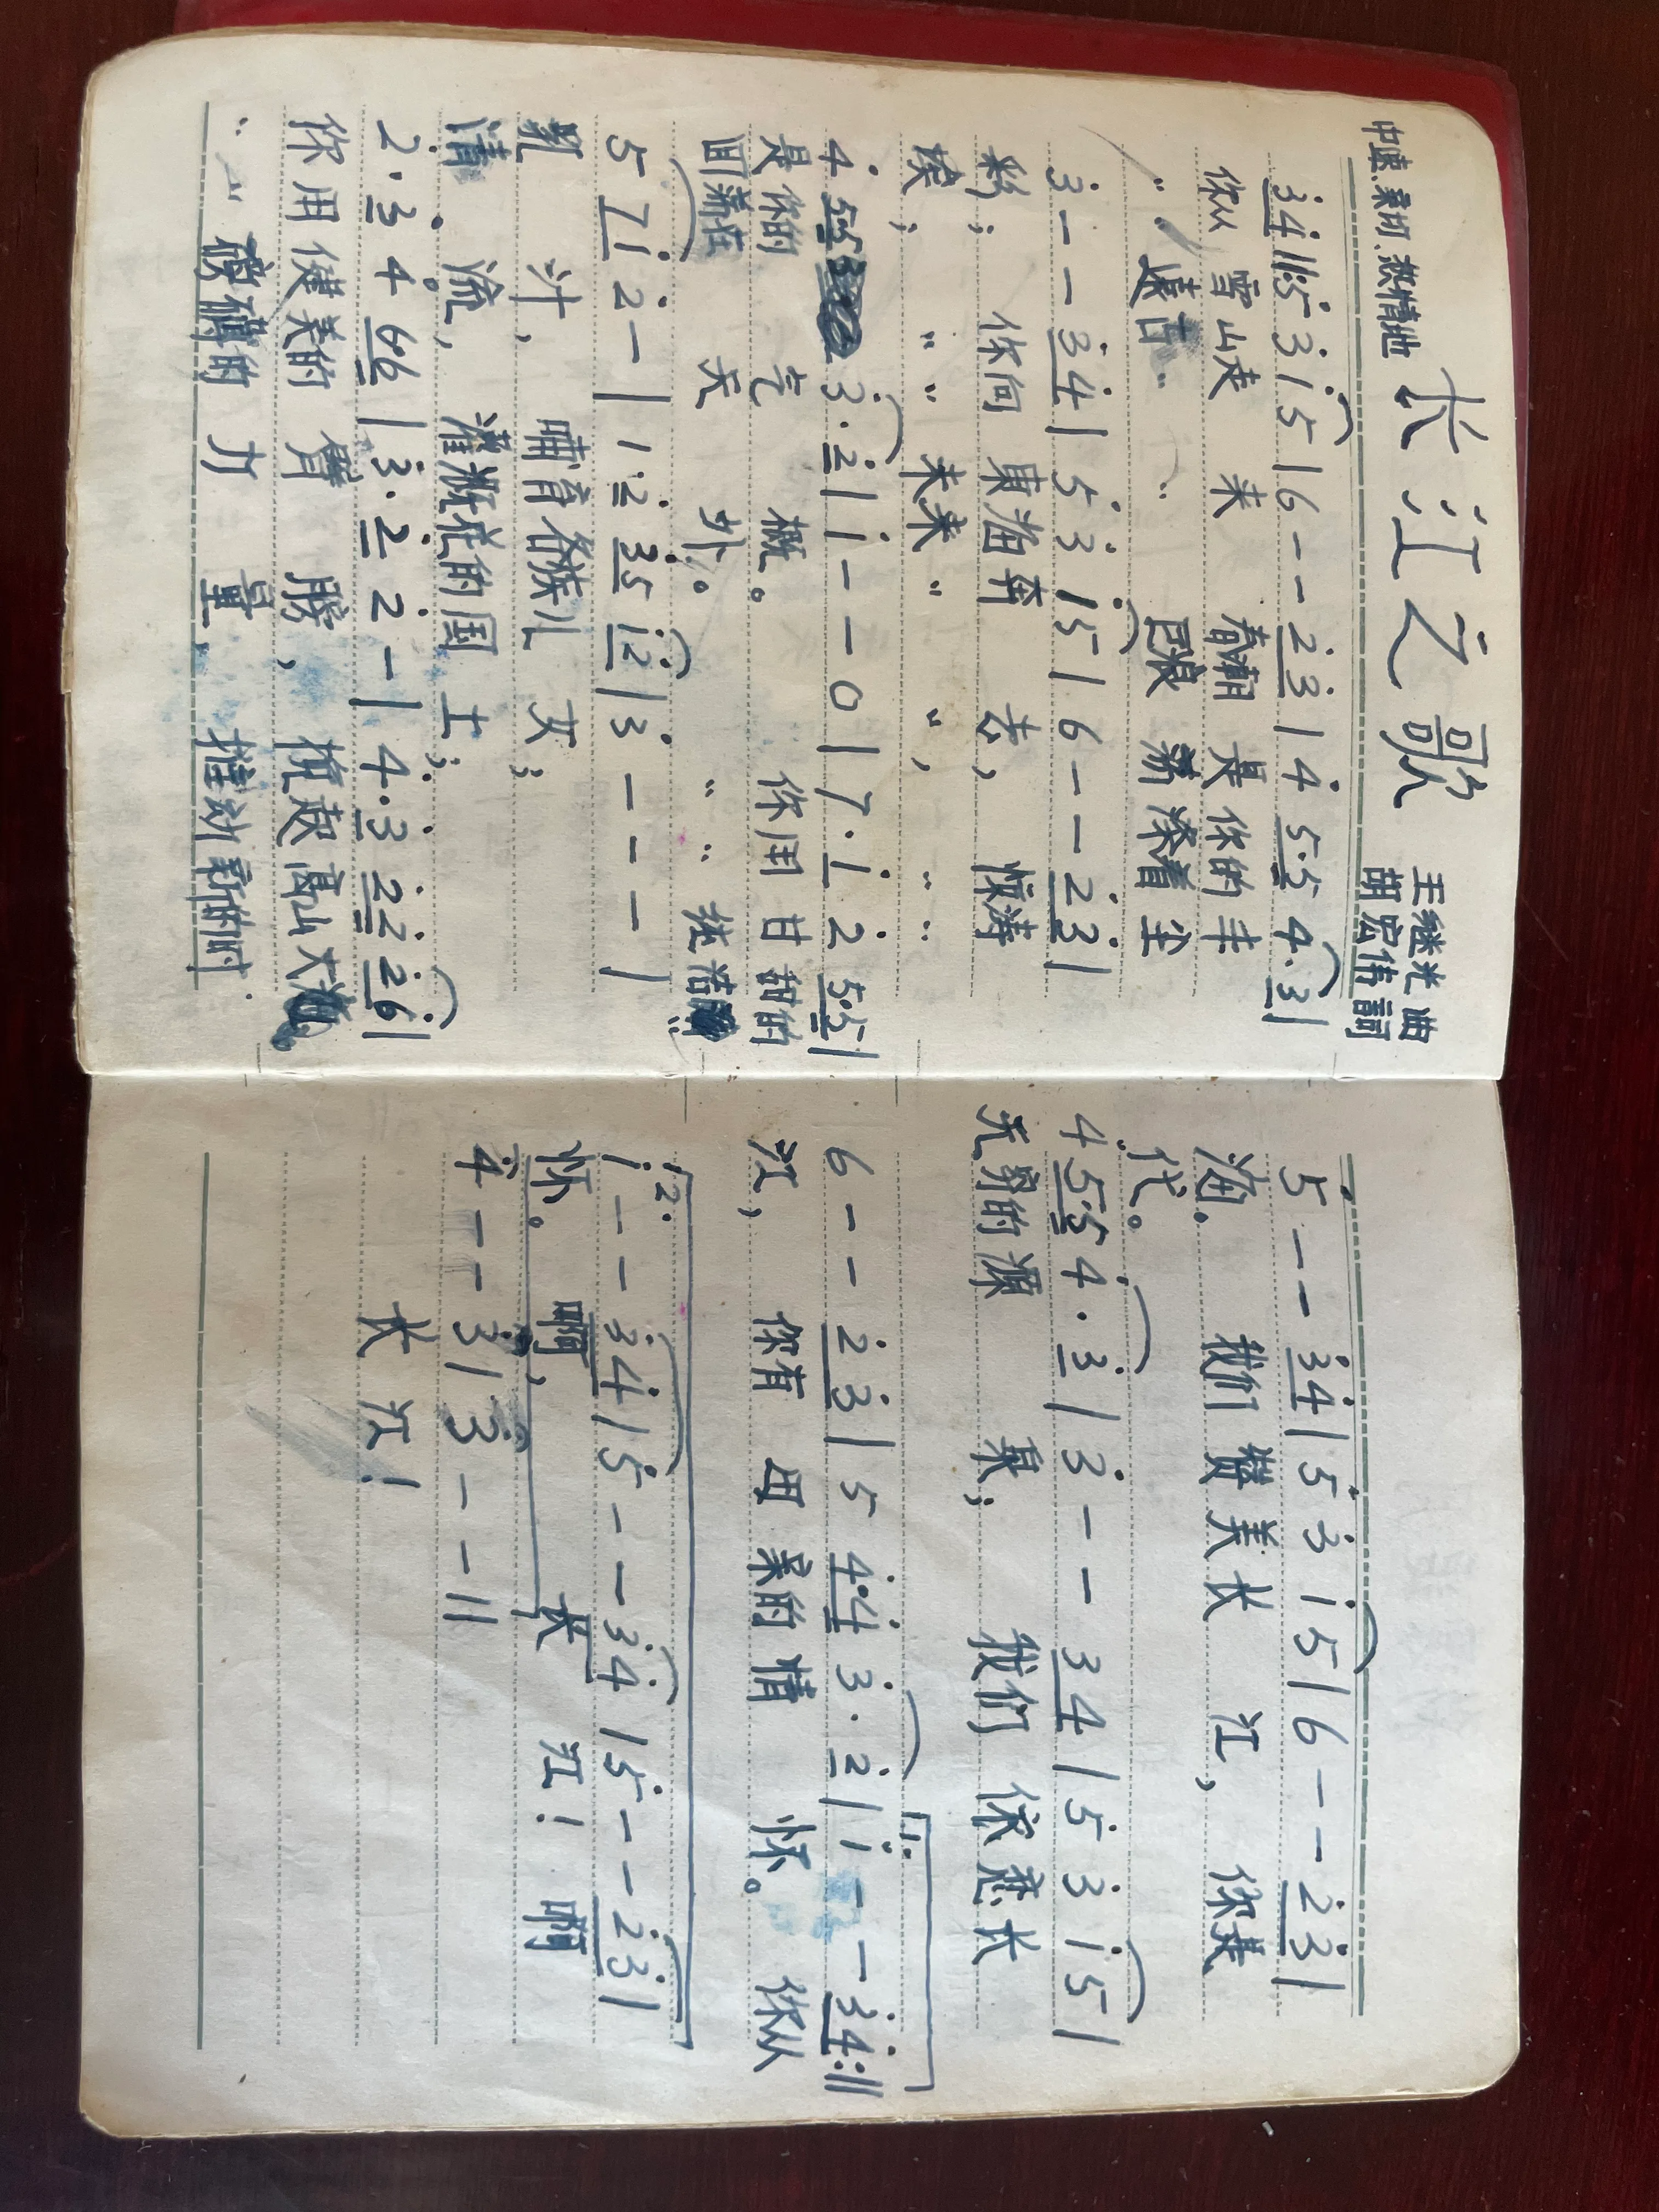 长江之歌
王继光曲
胡宏伟詞
中速 亲切.热情地
3 4 ‖: 5 3 1 5 | 6 - - 2 3 | 4 5·5 4·3 |
你从 雪山走 来 春潮 是 你的 丰
" " 遠古 " " 巨浪 荡 滌着 尘
3 - - 3 4 | 5 3 1 5 | 6 - - 2 3 |
彩； 你向 東海奔 去， 惊涛
埃； " " 未来 " "， " "
4 5·5 3·2 | 1 - - 0 | 7·1 2 5·5 |
是 你的 气 概。 你用 甘甜的
回荡在 天 外。 " " 纯洁的
5 7 1 2 - | 1 2 3 5 1 2 | 3 - - - |
乳 汁， 哺育各族儿 女；
清 流， 灌溉花的国 土；
2·3 4 6·6 | 3·2 2 - | 4·3 2 2 2 6 |
你用 健美的 臂 膀， 挽起高山大
" " 磅礴的 力 量， 推动新的时
5 - - 3 4 | 5 3 1 5 | 6 - - 2 3 |
海. 我们 赞美长 江， 你是
代。
4 5·5 4·3 | 3 - - 3 4 | 5 3 1 5 |
无 穷的 源 泉； 我们 依恋长
6 - - 2 3 | 5 4·4 3·2 | 1. 1 - - 3 4 :‖
江， 你有 母 亲的 情 怀。 你从
2. 1 - - 3 4 | 5 - - 3 4 | 5 - - 2 3 |
怀。 啊， 长 江！ 啊
4 - - 3 | 3 - - ‖
长 江！